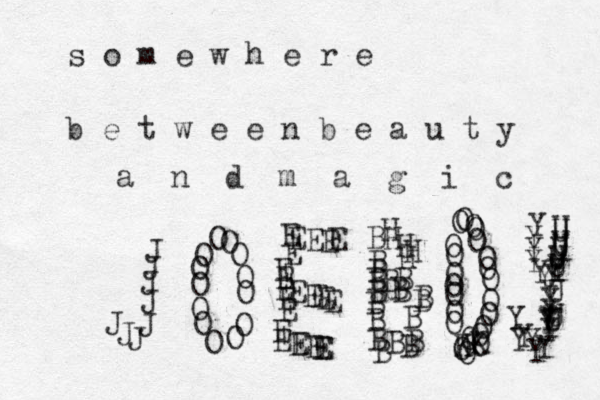 somewhere
betweenbeauty
andmagic
JOEBOY